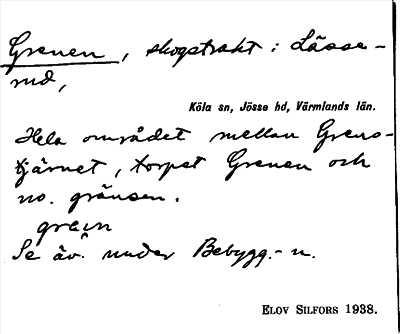 Grenen, skogstrakt i Lässe-
rud,
Köla sn, Jösse hd, Värmlands län.
Hela området mellan Grens-
tjärnet, torpet Grenen och
no. gränsen.
grȩn
Se äv. under Bebygg.-n.
ELOV SILFORS 1938.